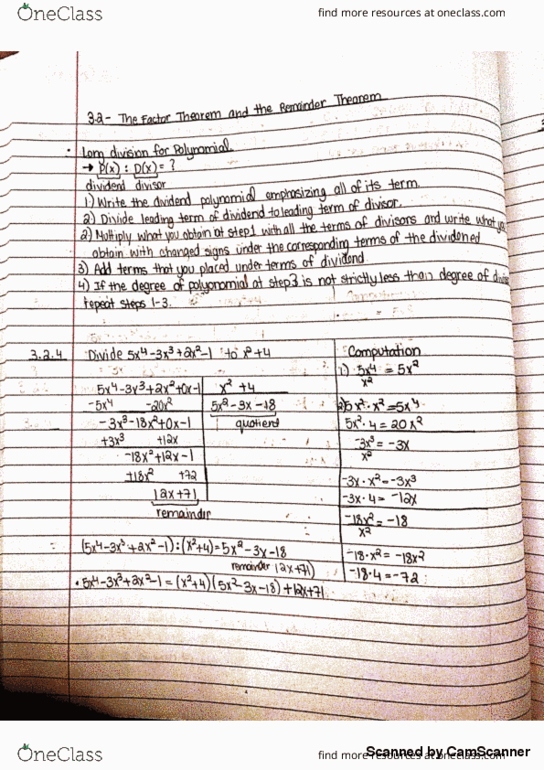 OneClass
find more resources at oneclass.com
3.2 - The Factor Theorem and the Remainder Theorem
Long division for Polynomial
→ P(x) : D(x) = ?
dividend divisor
1) Write the dividend polynomial emphasizing all of its term.
2) Divide leading term of dividend to leading term of divisor.
2) Multiply what you obtain at step 1 with all the terms of divisors and write what you
obtain with changed signs under the corresponding terms of the dividened
3) Add terms that you placed under terms of dividend
4) If the degree of polyonomial at step 3 is not strictly less than degree of
repeat steps 1-3.
3.2.4 Divide 5x⁴-3x³+2x²-1 to x²+4
Computation
1) 5x⁴/x² = 5x²
5x⁴-3x³+2x²+0x-1 | x²+4
-5x⁴ -20x² 5x²-3x-18
2) 5x²·x²=5x⁴
-3x³-18x²+0x-1 quotient
5x²·4=20x²
+3x³ +12x
-3x³/x² = -3x
-18x²+12x-1
+18x² +72
-3x·x²=-3x³
12x+71
-3x·4=-12x
remainder
-18x²/x² = -18
(5x⁴-3x³+2x²-1):(x²+4)=5x²-3x-18
-18·x²=-18x²
remainder 12x+71)
-18·4=-72
• 5x⁴-3x³+2x²-1=(x²+4)(5x²-3x-18)+12x+71
OneClass
find more resources at oneclass.com
Scanned by CamScanner